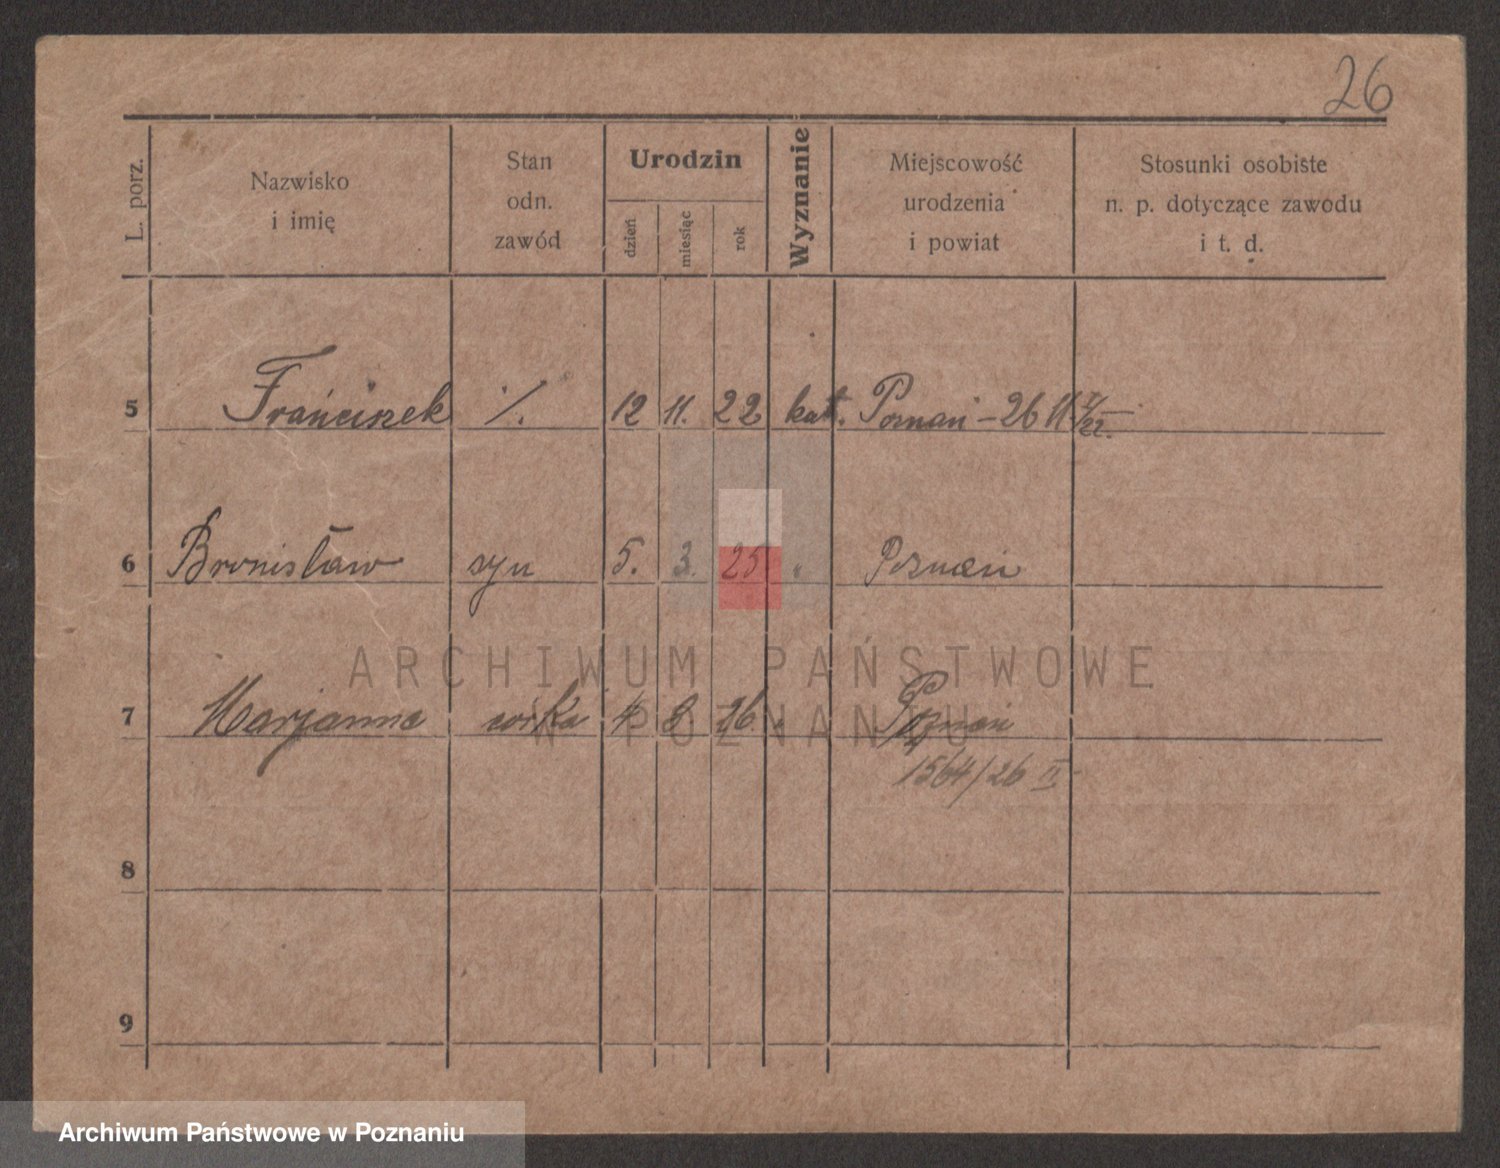 26
L. porz.
Nazwisko
i imię
Stan
odn.
zawód
Urodzin
dzień
miesiąc
rok
Wyznanie
Miejscowość
urodzenia
i powiat
Stosunki osobiste
n. p. dotyczące zawodu
i t. d.
5 Franciszek ./. 12 11. 22 kat. Poznań - 2611 /22.
6 Bronisław syn 5. 3. 25 " Poznań
ARCHIWUM PAŃSTWOWE
7 Marjanna córka 4 8 26. Poznań
W POZNANIU
1564/26 II
8
9
Archiwum Państwowe w Poznaniu